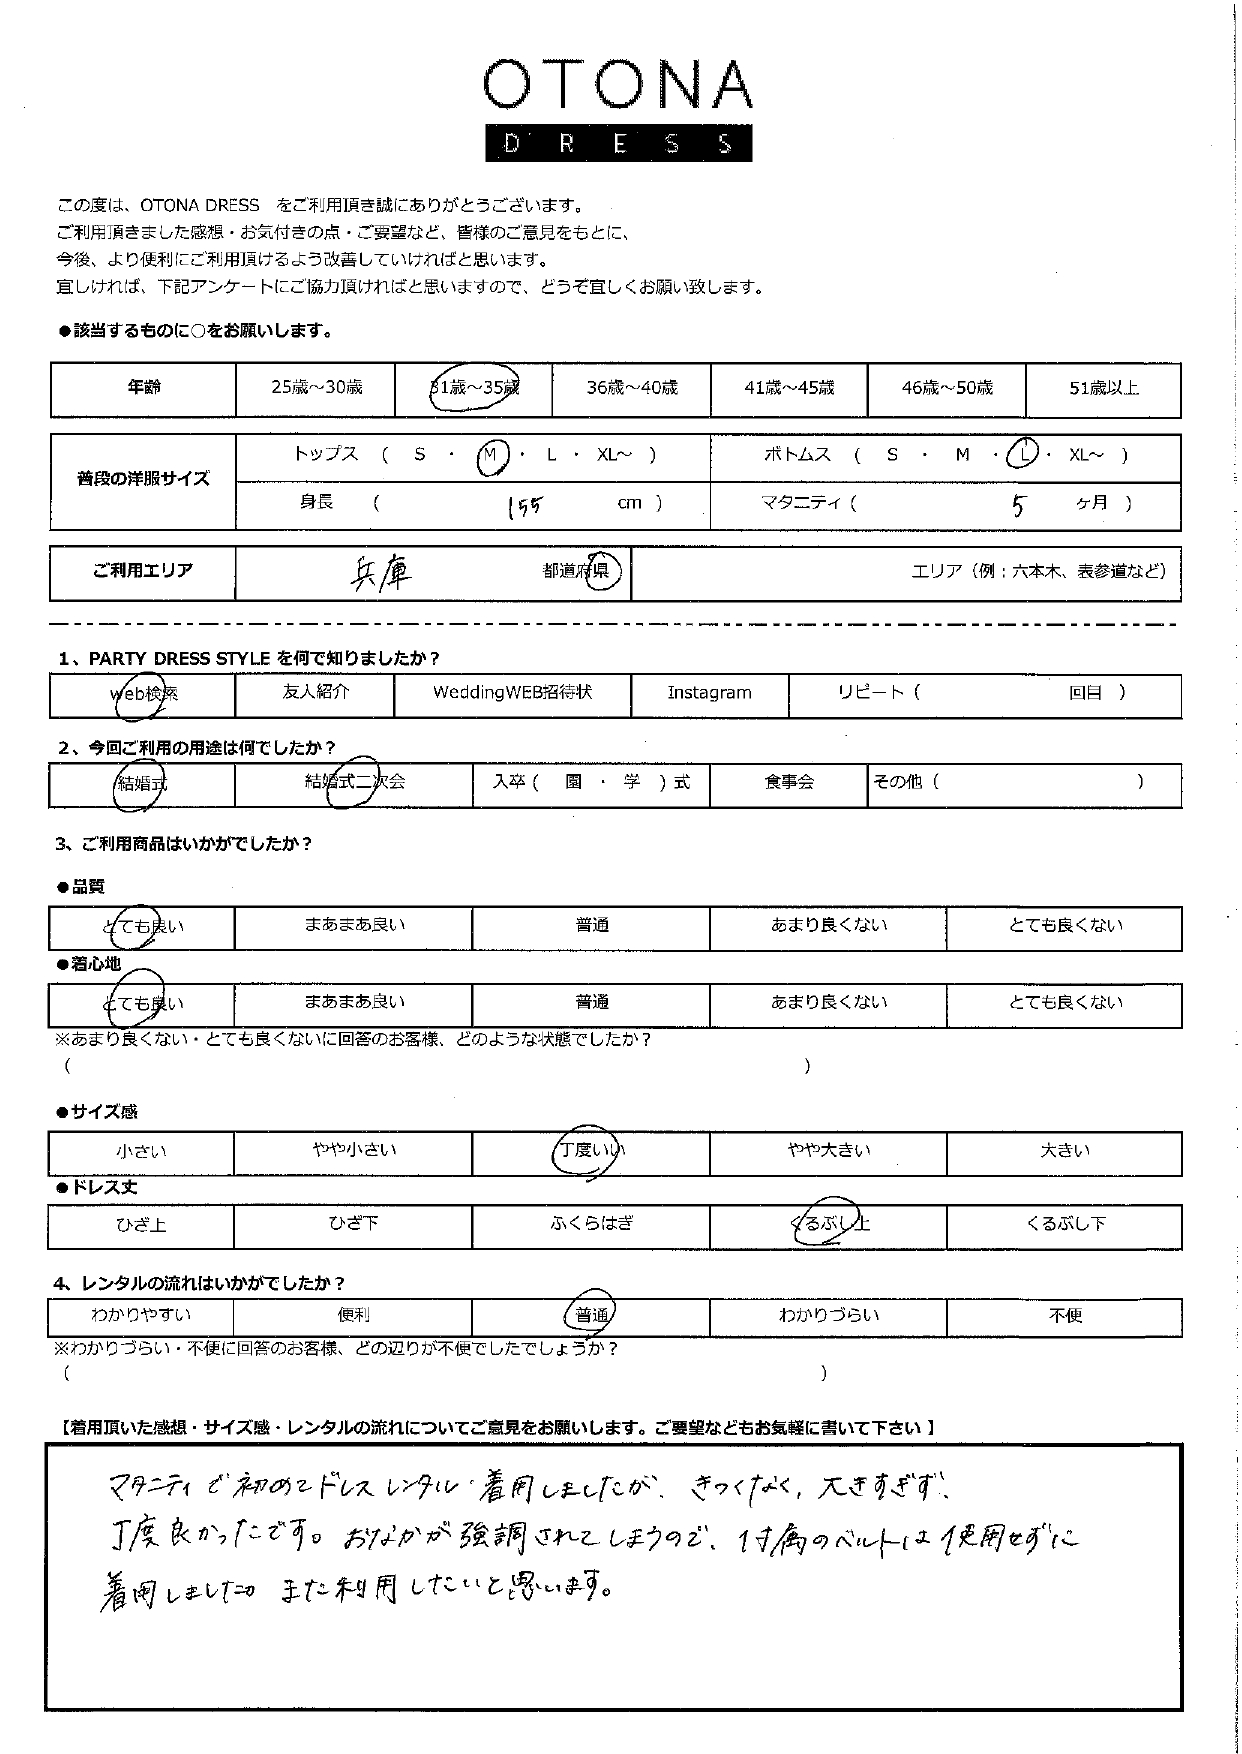 OTONA
DRESS
この度は、OTONA DRESS　をご利用頂き誠にありがとうございます。
ご利用頂きました感想・お気付きの点・ご要望など、皆様のご意見をもとに、
今後、より便利にご利用頂けるよう改善していければと思います。
宜しければ、下記アンケートにご協力頂ければと思いますので、どうぞ宜しくお願い致します。
●該当するものに○をお願いします。
年齢 25歳～30歳 31歳～35歳 36歳～40歳 41歳～45歳 46歳～50歳 51歳以上
普段の洋服サイズ トップス ( S ・ M ・ L ・ XL～ ) ボトムス ( S ・ M ・ L ・ XL～ )
身長 ( 155 cm ) マタニティ ( 5 ヶ月 )
ご利用エリア 兵庫 都道府県 エリア（例：六本木、表参道など）
1、PARTY DRESS STYLE を何で知りましたか？
web検索 友人紹介 WeddingWEB招待状 Instagram リピート ( 回目 )
2、今回ご利用の用途は何でしたか？
結婚式 結婚式二次会 入卒 ( 園 ・ 学 ) 式 食事会 その他 ( )
3、ご利用商品はいかがでしたか？
●品質
とても良い まあまあ良い 普通 あまり良くない とても良くない
●着心地
とても良い まあまあ良い 普通 あまり良くない とても良くない
※あまり良くない・とても良くないに回答のお客様、どのような状態でしたか？
( )
●サイズ感
小さい やや小さい 丁度いい やや大きい 大きい
●ドレス丈
ひざ上 ひざ下 ふくらはぎ くるぶし上 くるぶし下
4、レンタルの流れはいかがでしたか？
わかりやすい 便利 普通 わかりづらい 不便
※わかりづらい・不便に回答のお客様、どの辺りが不便でしたでしょうか？
( )
【着用頂いた感想・サイズ感・レンタルの流れについてご意見をお願いします。ご要望などもお気軽に書いて下さい 】
マタニティで初めてドレスレンタル・着用しましたが、きつくなく、大きすぎず、
丁度良かったです。おなかが強調されてしまうので、付属のベルトは使用せずに
着用しました。また利用したいと思います。